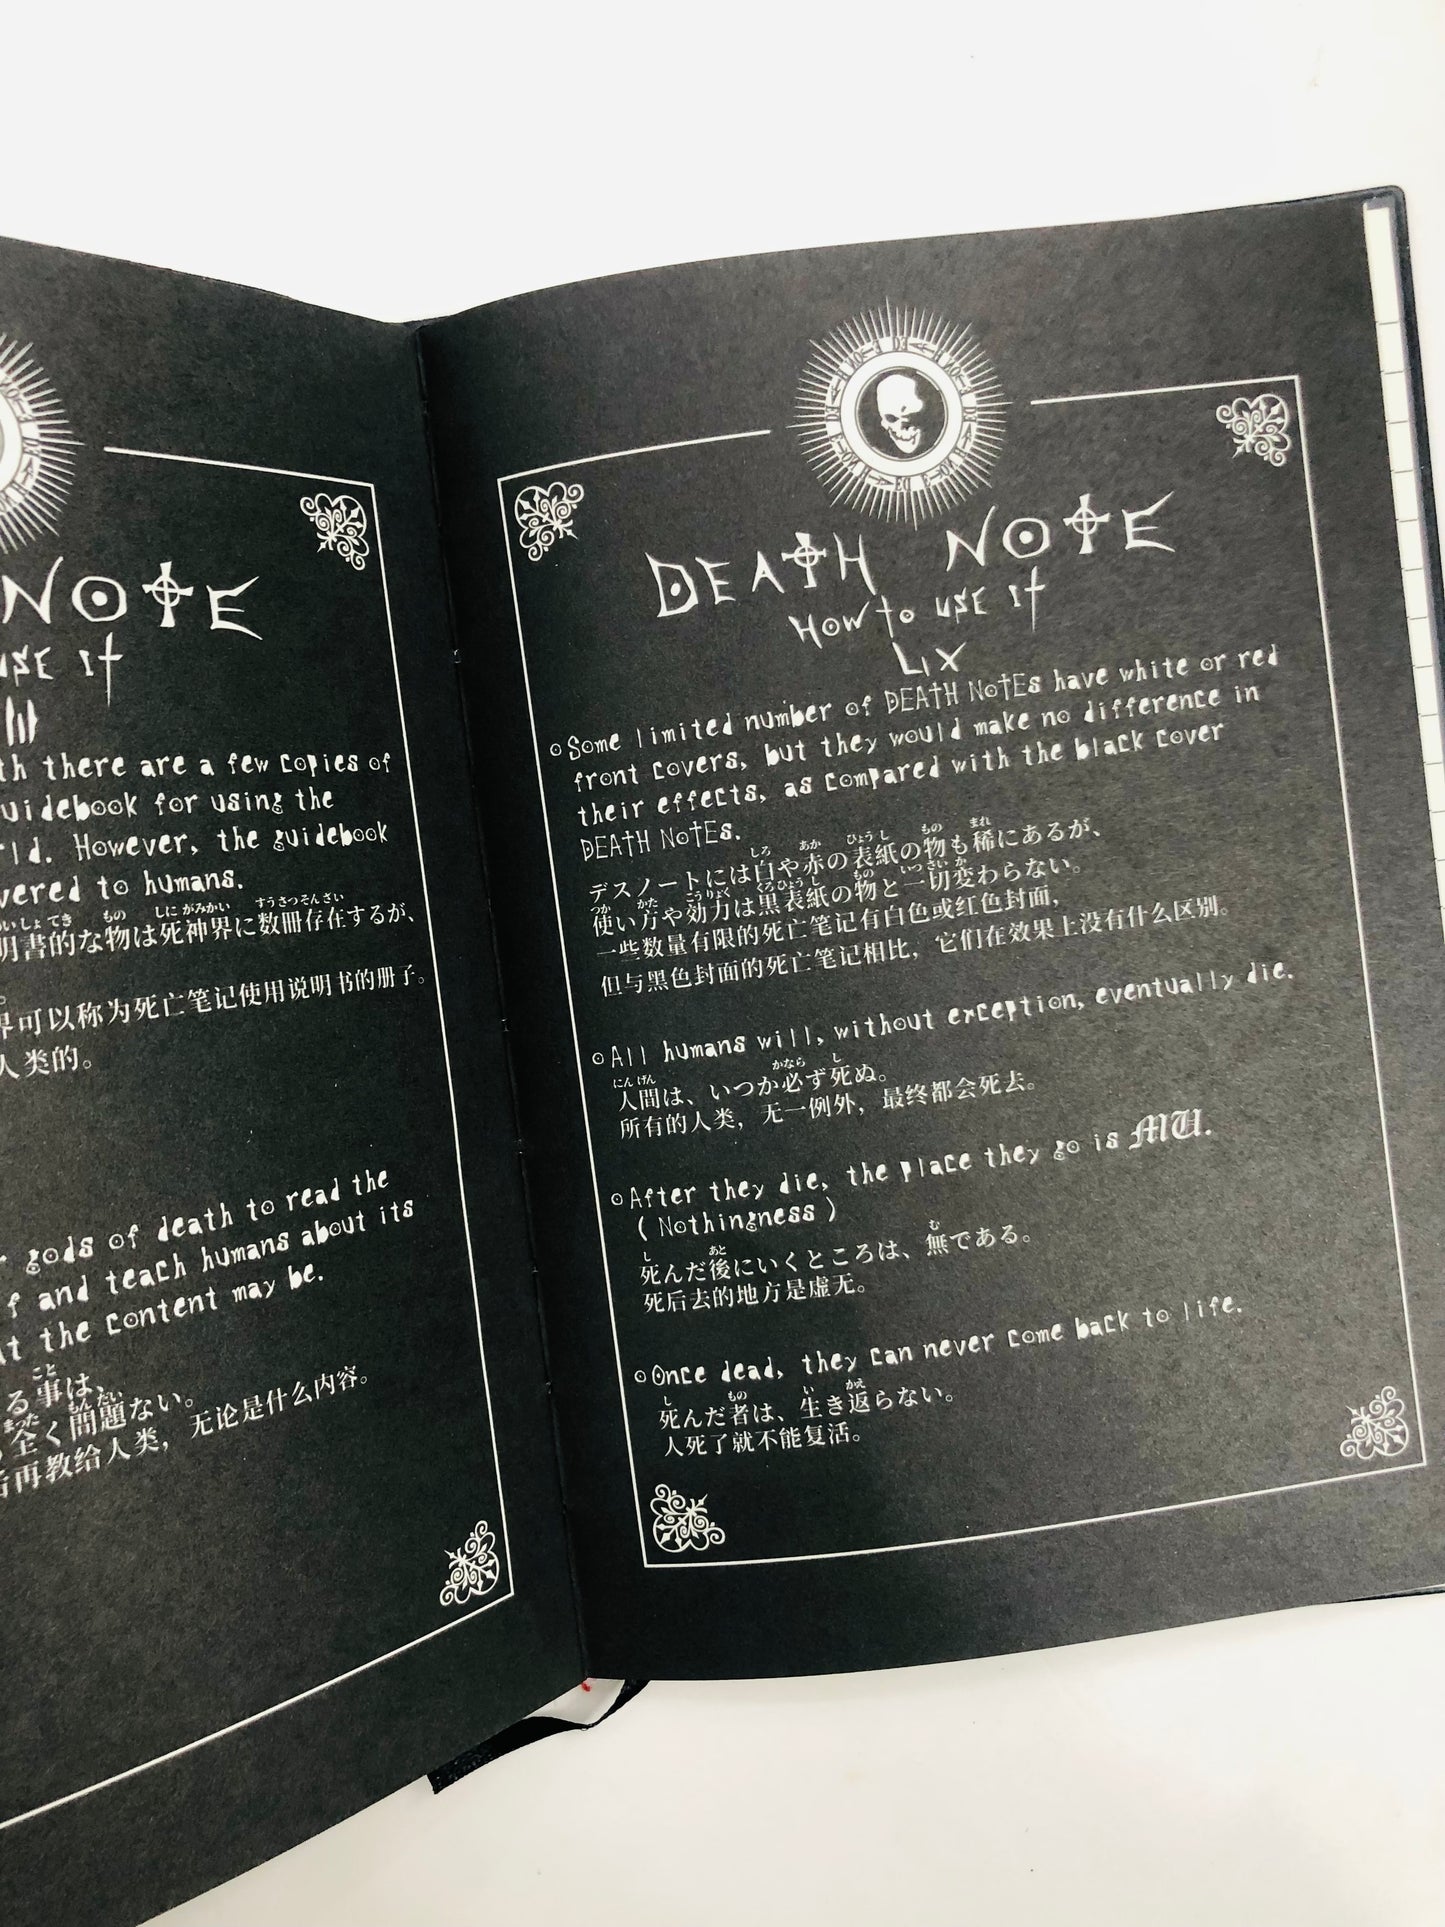 NOTE
USE IT
th there are a few copies of
uidebook for using the
rld. However, the guidebook
vered to humans.
すうさつそんざい
しょ てき もの しにがみかい
明書的な物は死神界に数冊存在するが、
界可以称为死亡笔记使用说明书的册子。
人类的。
gods of death to read the
f and teach humans about its
at the content may be.
こと
る事は、
まった もんだい
全く問題ない。
后再教给人类，无论是什么内容。
DEATH NOTE
HOW to USE IT
LIX
Some limited number of DEATH NOTEs have white or red
front covers, but they would make no difference in
their effects, as compared with the black cover
DEATH NOTEs.
しろ あか ひょうし もの まれ
デスノートには白や赤の表紙の物も稀にあるが、
つか かた こうりょく くろひょうし もの いっさい か
使い方や効力は黒表紙の物と一切変わらない。
一些数量有限的死亡笔记有白色或红色封面，
但与黑色封面的死亡笔记相比，它们在效果上没有什么区别。
All humans will, without exception, eventually die.
にん げん かなら し
人間は、いつか必ず死ぬ。
所有的人类，无一例外，最终都会死去。
After they die, the place they go is MU.
(Nothingness)
し あと む
死んだ後にいくところは、無である。
死后去的地方是虚无。
Once dead, they can never come back to life.
し もの い かえ
死んだ者は、生き返らない。
人死了就不能复活。